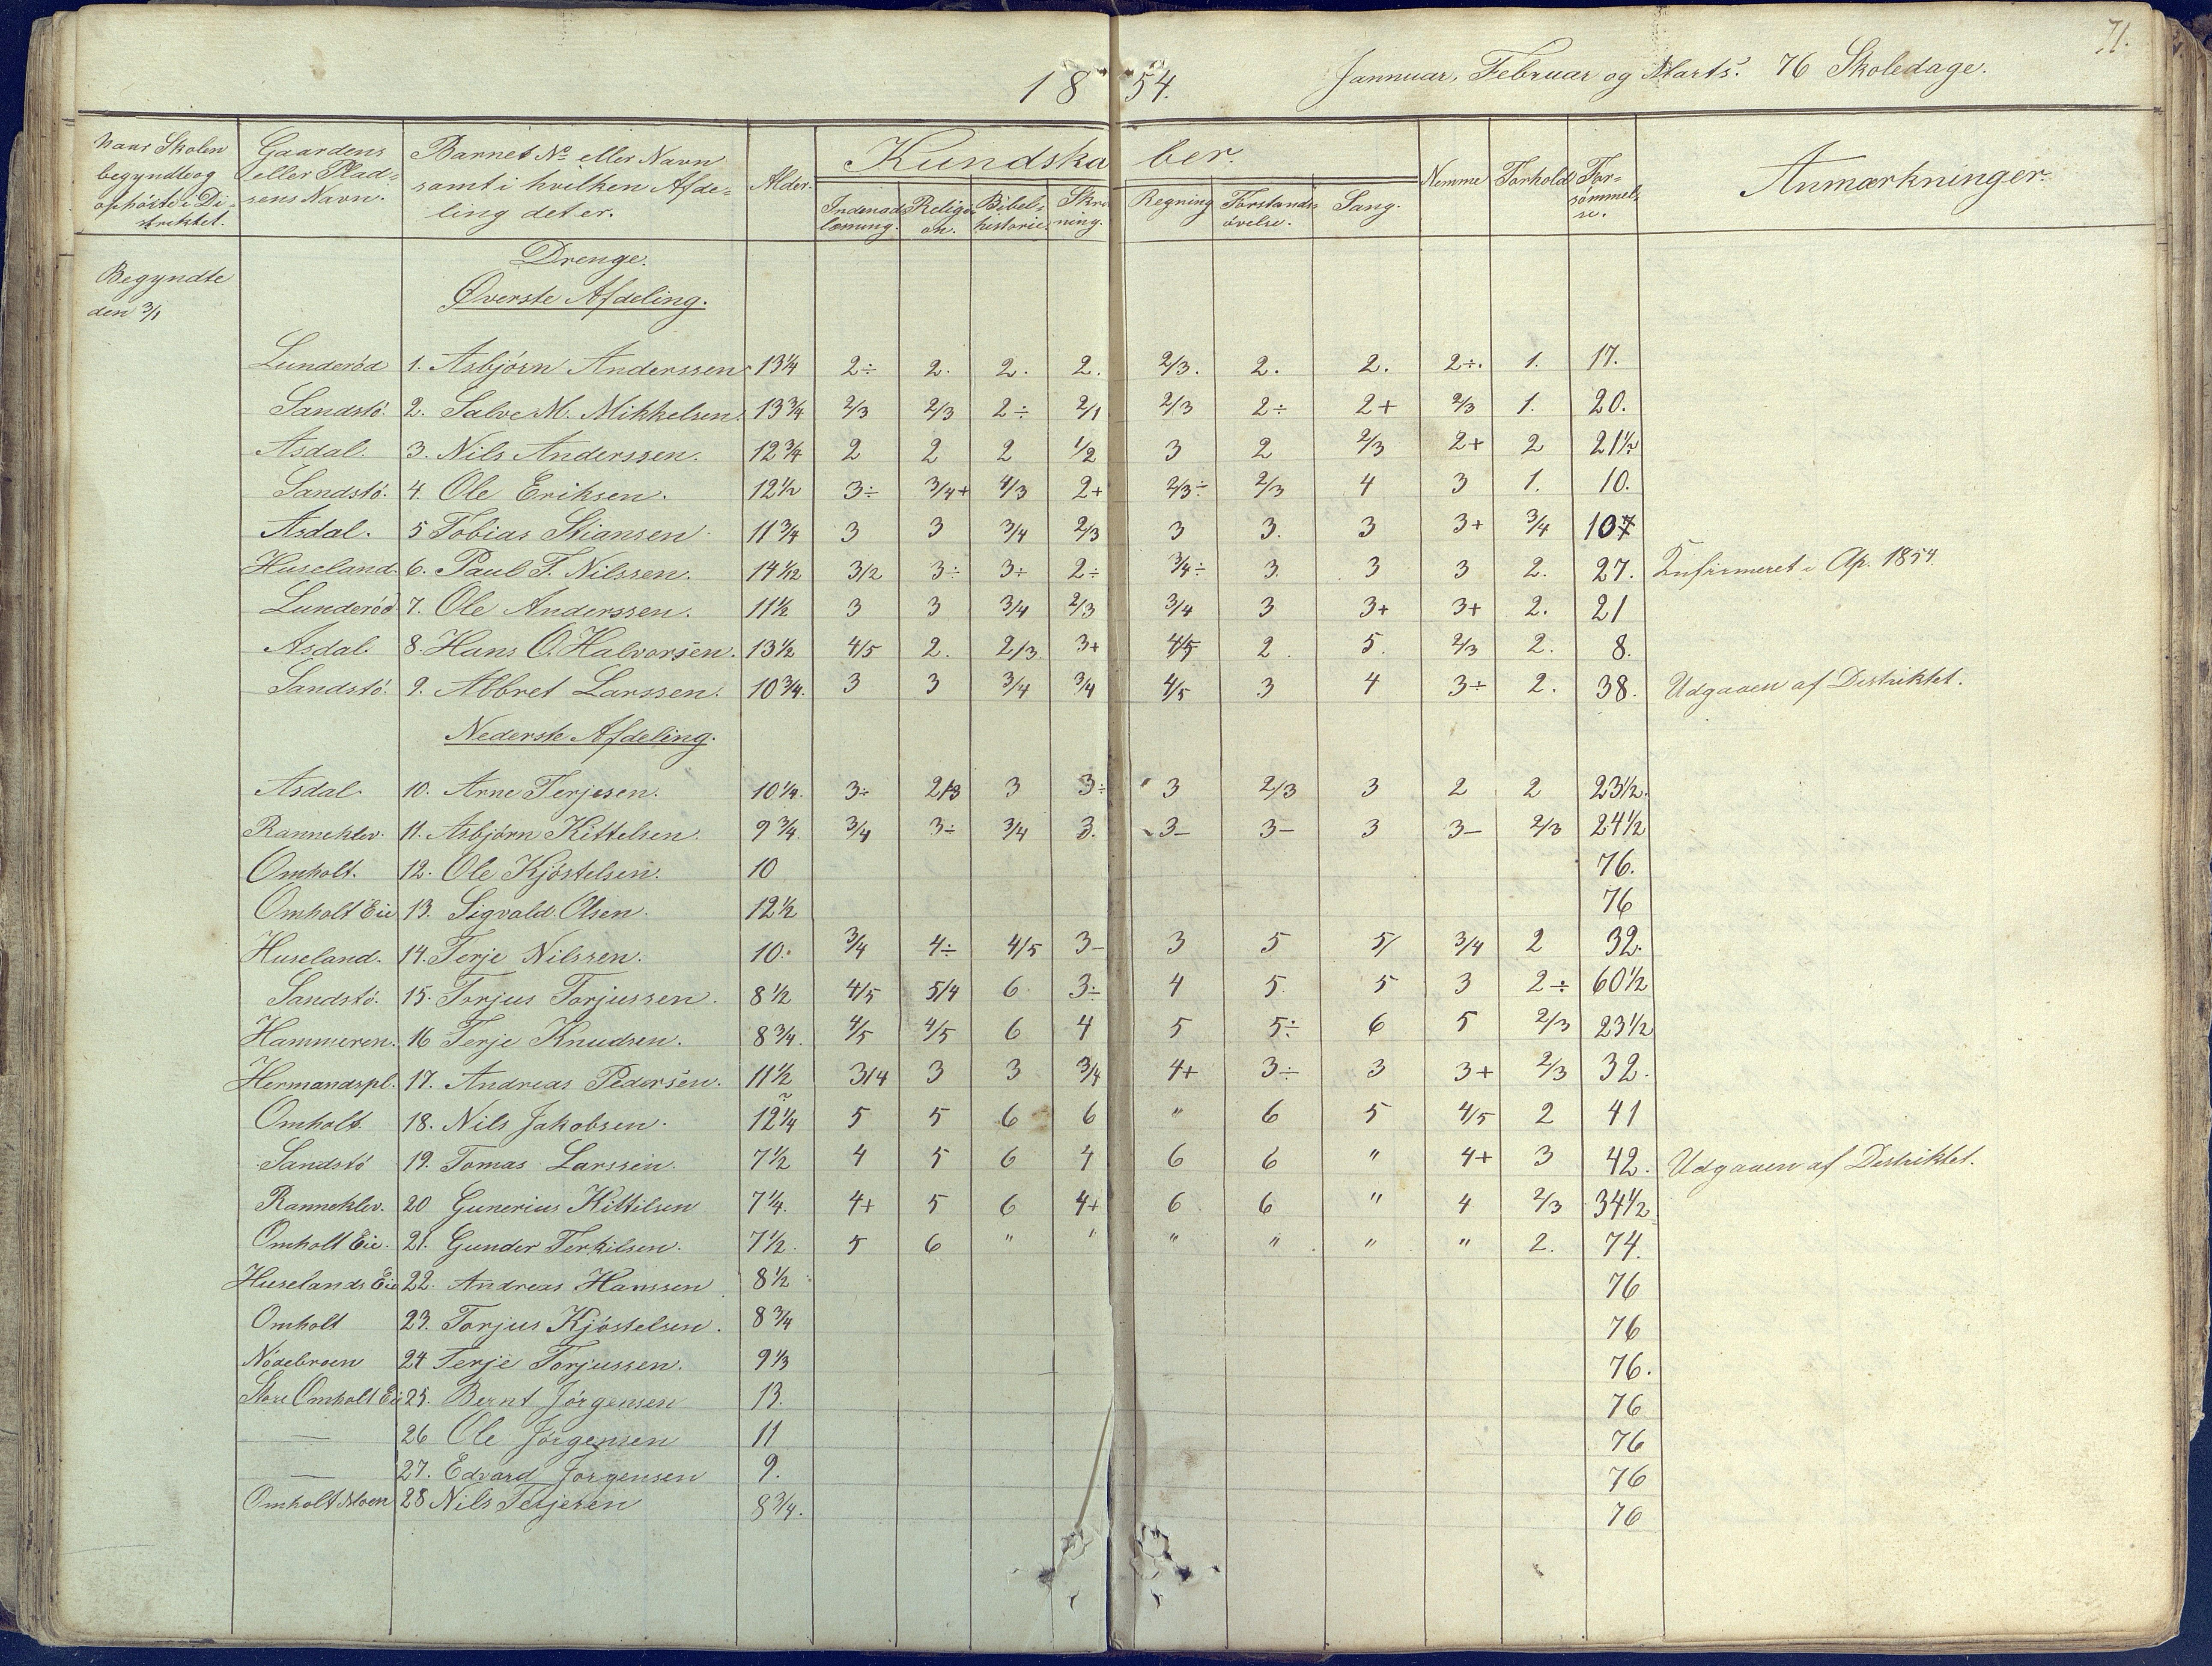 71.
1854. Jannuar, Februar og Marts. 76 Skoledage.
Naar Skolen begyndte og ophörte i Distriktet. Gaardens eller Pladsens Navn. Barnets No eller Navn samt i hvilken Afdeling det er. Alder. Kundskaber. Nemme Forhold Forsömmelse. Anmærkninger.
Indenadslæsning. Religion. Bibelhistorie. Skrivning. Regning Forstandsövelse. Sang.
Begyndte den 3/1
Drenge.
Øverste Afdeling.
Lunderöd 1. Asbjörn Anderssen 13 1/4 2÷ 2. 2. 2. 2/3. 2. 2. 2÷. 1. 17.
Sandstö. 2. Salve M. Mikkelsen. 13 3/4 2/3 2/3 2÷ 2/1 2/3 2÷ 2+ 2/3 1. 20.
Asdal. 3. Nils Anderssen. 12 3/4 2 2 2 1/2 3 2 2/3 2+ 2 21 1/2
Sandstö. 4. Ole Eriksen. 12 1/2 3÷ 3/4+ 4/3 2+ 2/3÷ 2/3 4 3 1. 10.
Asdal. 5 Tobias Stiansen 11 3/4 3 3 3/4 2/3 3 3. 3 3+ 3/4
Huseland. 6. Paul T. Nilssen. 14 1/12 3/2 3÷ 3÷ 2÷ 3/4÷ 3. 3 3 2. 27. Ap. 1854.
Lunderöd 7. Ole Anderssen. 11 1/2 3 3 3/4 2/3 3/4 3 3+ 3+ 2. 21
Asdal. 8. Hans O. Halvorsen. 13 1/2 4/5 2. 2/3. 3+ 4/5 2. 5. 2/3 2. 8.
Sandstö. 9. Abbret Larssen. 10 3/4. 3 3 3/4 3/4 4/5 3 4 3÷ 2. 38. Udgaaen af Destriktet.
Nederste Afdeling.
Asdal. 10. Arne Terjesen. 10 1/4. 3÷ 2/3 3 3÷ 3 2/3 3 2 2 23 1/2.
Ranneklev. 11. Asbjörn Kittelsen. 9 3/4. 3/4 3÷ 3/4 3. 3– 3– 3 3– 2/3 24 1/2
Omholt. 12. Ole Kjöstelsen. 10 76.
Omholt Eie 13. Sigvald Olsen. 12 1/2 76
Huseland. 14. Terje Nilssen. 10. 3/4 4÷ 4/5 3– 3 5 5/ 3/4 2 32.
Sandstö. 15. Torjus Torjussen. 8 1/2 4/5 5/4 6 3÷ 4 5. 5 3 2÷ 60 1/2
Hammeren. 16 Terje Knudsen. 8 3/4. 4/5 4/5 6 4 5 5÷ 6 5 2/3 23 1/2
Hermandspl. 17. Andreas Pedersen. 11 1/2 3/4 3 3 3/4 4+ 3÷ 3 3+ 2/3 32.
Omholt 18. Nils Jakobsen. 12 1/4 5 5 6 6 " 6 5 4/5 2 41
Sandstö 19. Tomas Larssen. 7 1/2 4 5 6 4 6 6 " 4+ 3 42. Udgaaen af Destriktet.
Ranneklev. 20 Gunerius Kittilsen 7 1/4. 4+ 5 6 4+ 6 6 " 4 2/3 34 1/2
Omholt Eie. 21. Gunder Terkilsen. 7 1/2. 5 6 " " " " " " 2. 74.
Huselands Eie 22. Andreas Hanssen 8 1/2 76
Omholt 23. Torjus Kjöstelsen. 8 3/4 76
Nödebroen 24 Terje Torjussen. 9 1/3 76.
Store Omholt Eie 25. Bernt Jörgensen 13. 76
— 26 Ole Jörgensen 11 76
— 27. Edvard Jorgensen 9. 76
Omholt Moen 28 Nils Terjesen 8 3/4. 76